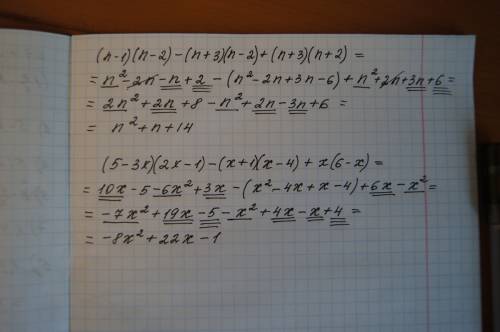 (n-1)(n-2)-(n+3)(n-2)+(n+3)(n+2)=
= n²-2n-n+2-(n²-2n+3n-6)+n²+2n+3n+6=
= 2n²+2n+8-n²+2n-3n+6 =
= n²+n+14
(5-3x)(2x-1)-(x+1)(x-4)+x(6-x)=
= 10x-5-6x²+3x-(x²-4x+x-4)+6x-x²=
= -7x²+19x-5-x²+4x-x+4=
= -8x²+22x-1